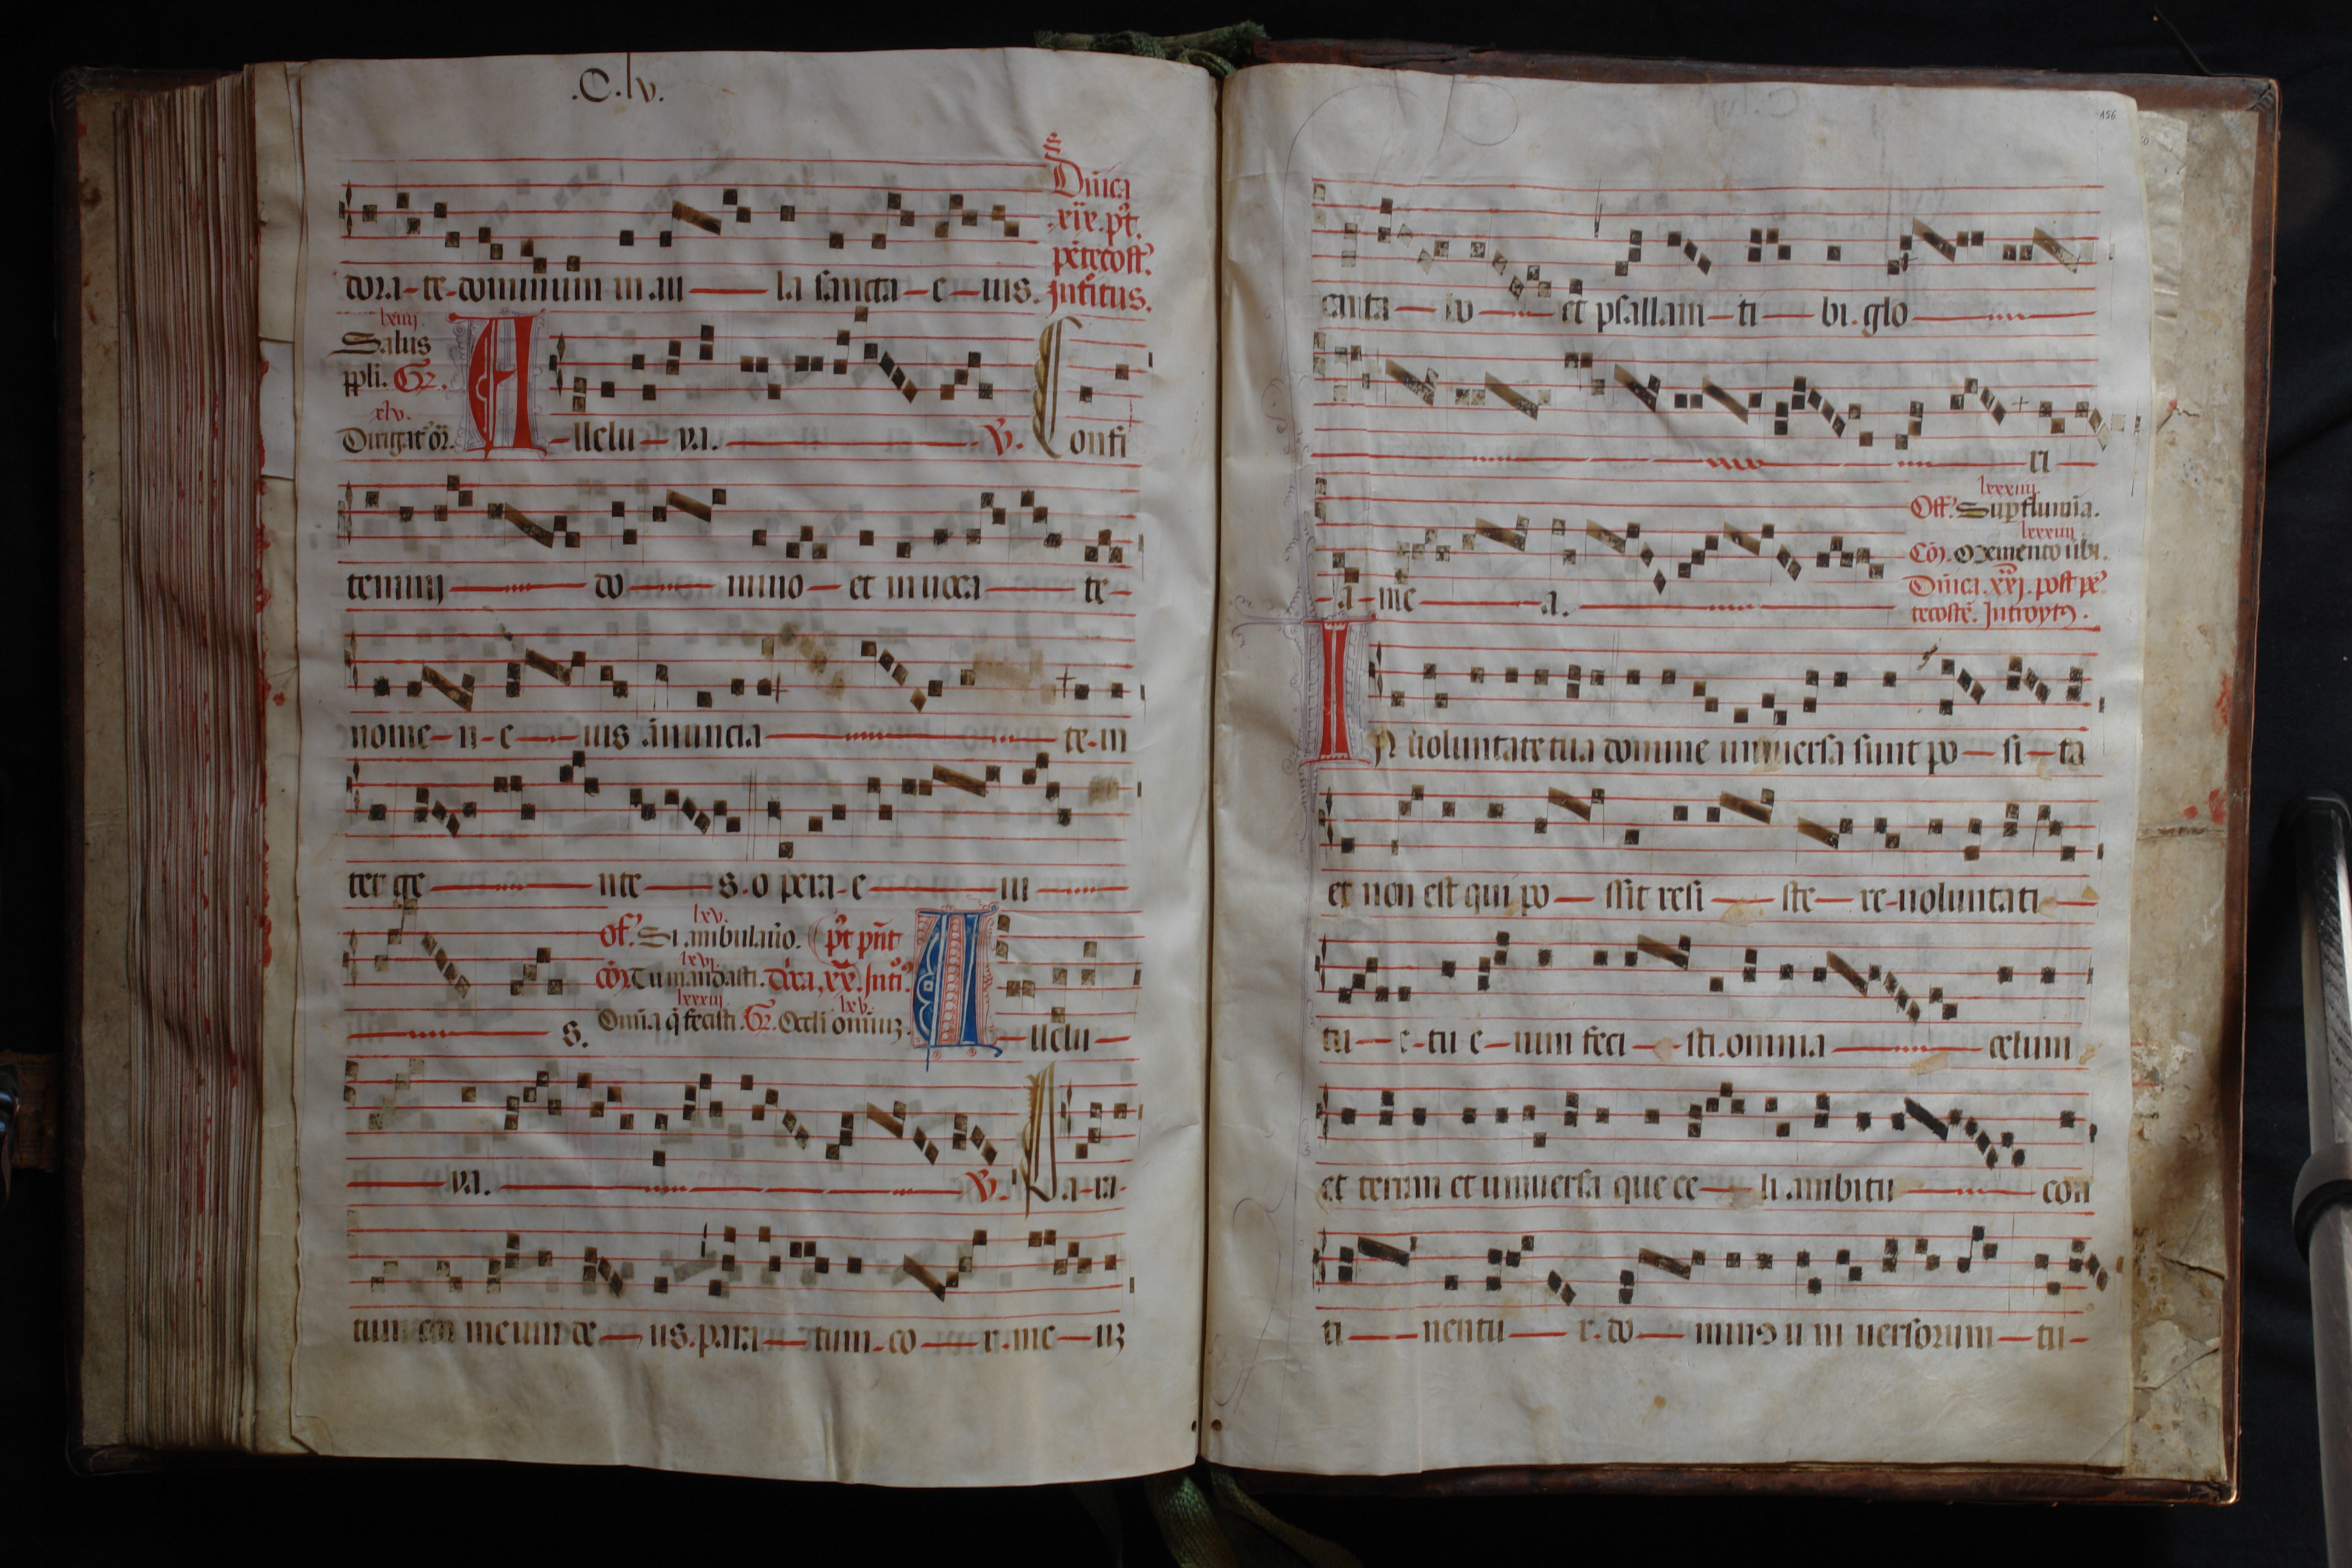 .C.lv.
Dn̄ica
.xix. pt̄.
pētecost̄.
Introitus.
dora-te-dominum in au — la sancta-e-ius.
lxiiij
Salus
ppli. Gr.
xlv.
Dirigat or̄.
A-llelu-ya. — V. Confi
temini — do — mino-et inuoca — te-
nome-n-e — ius ānuncia — te-in
ter ge — nte — s.o pera-e — iu —
s.
lxv.
Of. Si ambulauo.
lxvi.
Cō. Tu mandasti. Dn̄ica. xx. Intro.
lxxxiij
lxv.
Omīa q̄ fecisti. Gr. Occli omniuz.
A-llelu-
ya. — V. Pa-ra-
tum cor meum de-us.para-tum-co-r.me-uz
156
canta — bo — et psallam-ti — bi.glo —
ri —
-a-me — a. —
lxxxiiij
Off. Sup flumīa.
lxxxiiij
Cō. Memento ūbi.
Dn̄ica. xxj. post pē
tecostē. Introyts.
IN uoluntate tua domine uniuersa sunt po-si-ta
et non est qui po-ssit resi — ste-re-uoluntati —
tu-e-tu e-nim feci-sti.omnia — celum
et terram et uniuersa que ce-li ambitu — con
ti — nentu — r.do — minus u ni uersorum-tu-